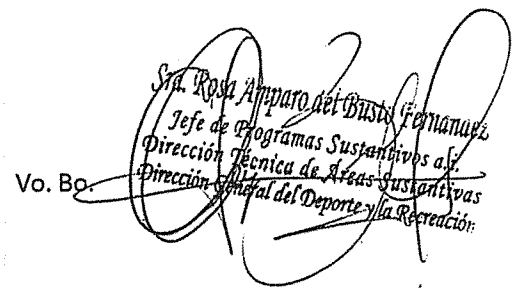 Sra. Rosa Amparo del Busto Fernandez
Jefe de Programas Sustantivos a.i.
Dirección Técnica de Areas Sustantivas
Vo. Bo.
Dirección General del Deporte y la Recreación